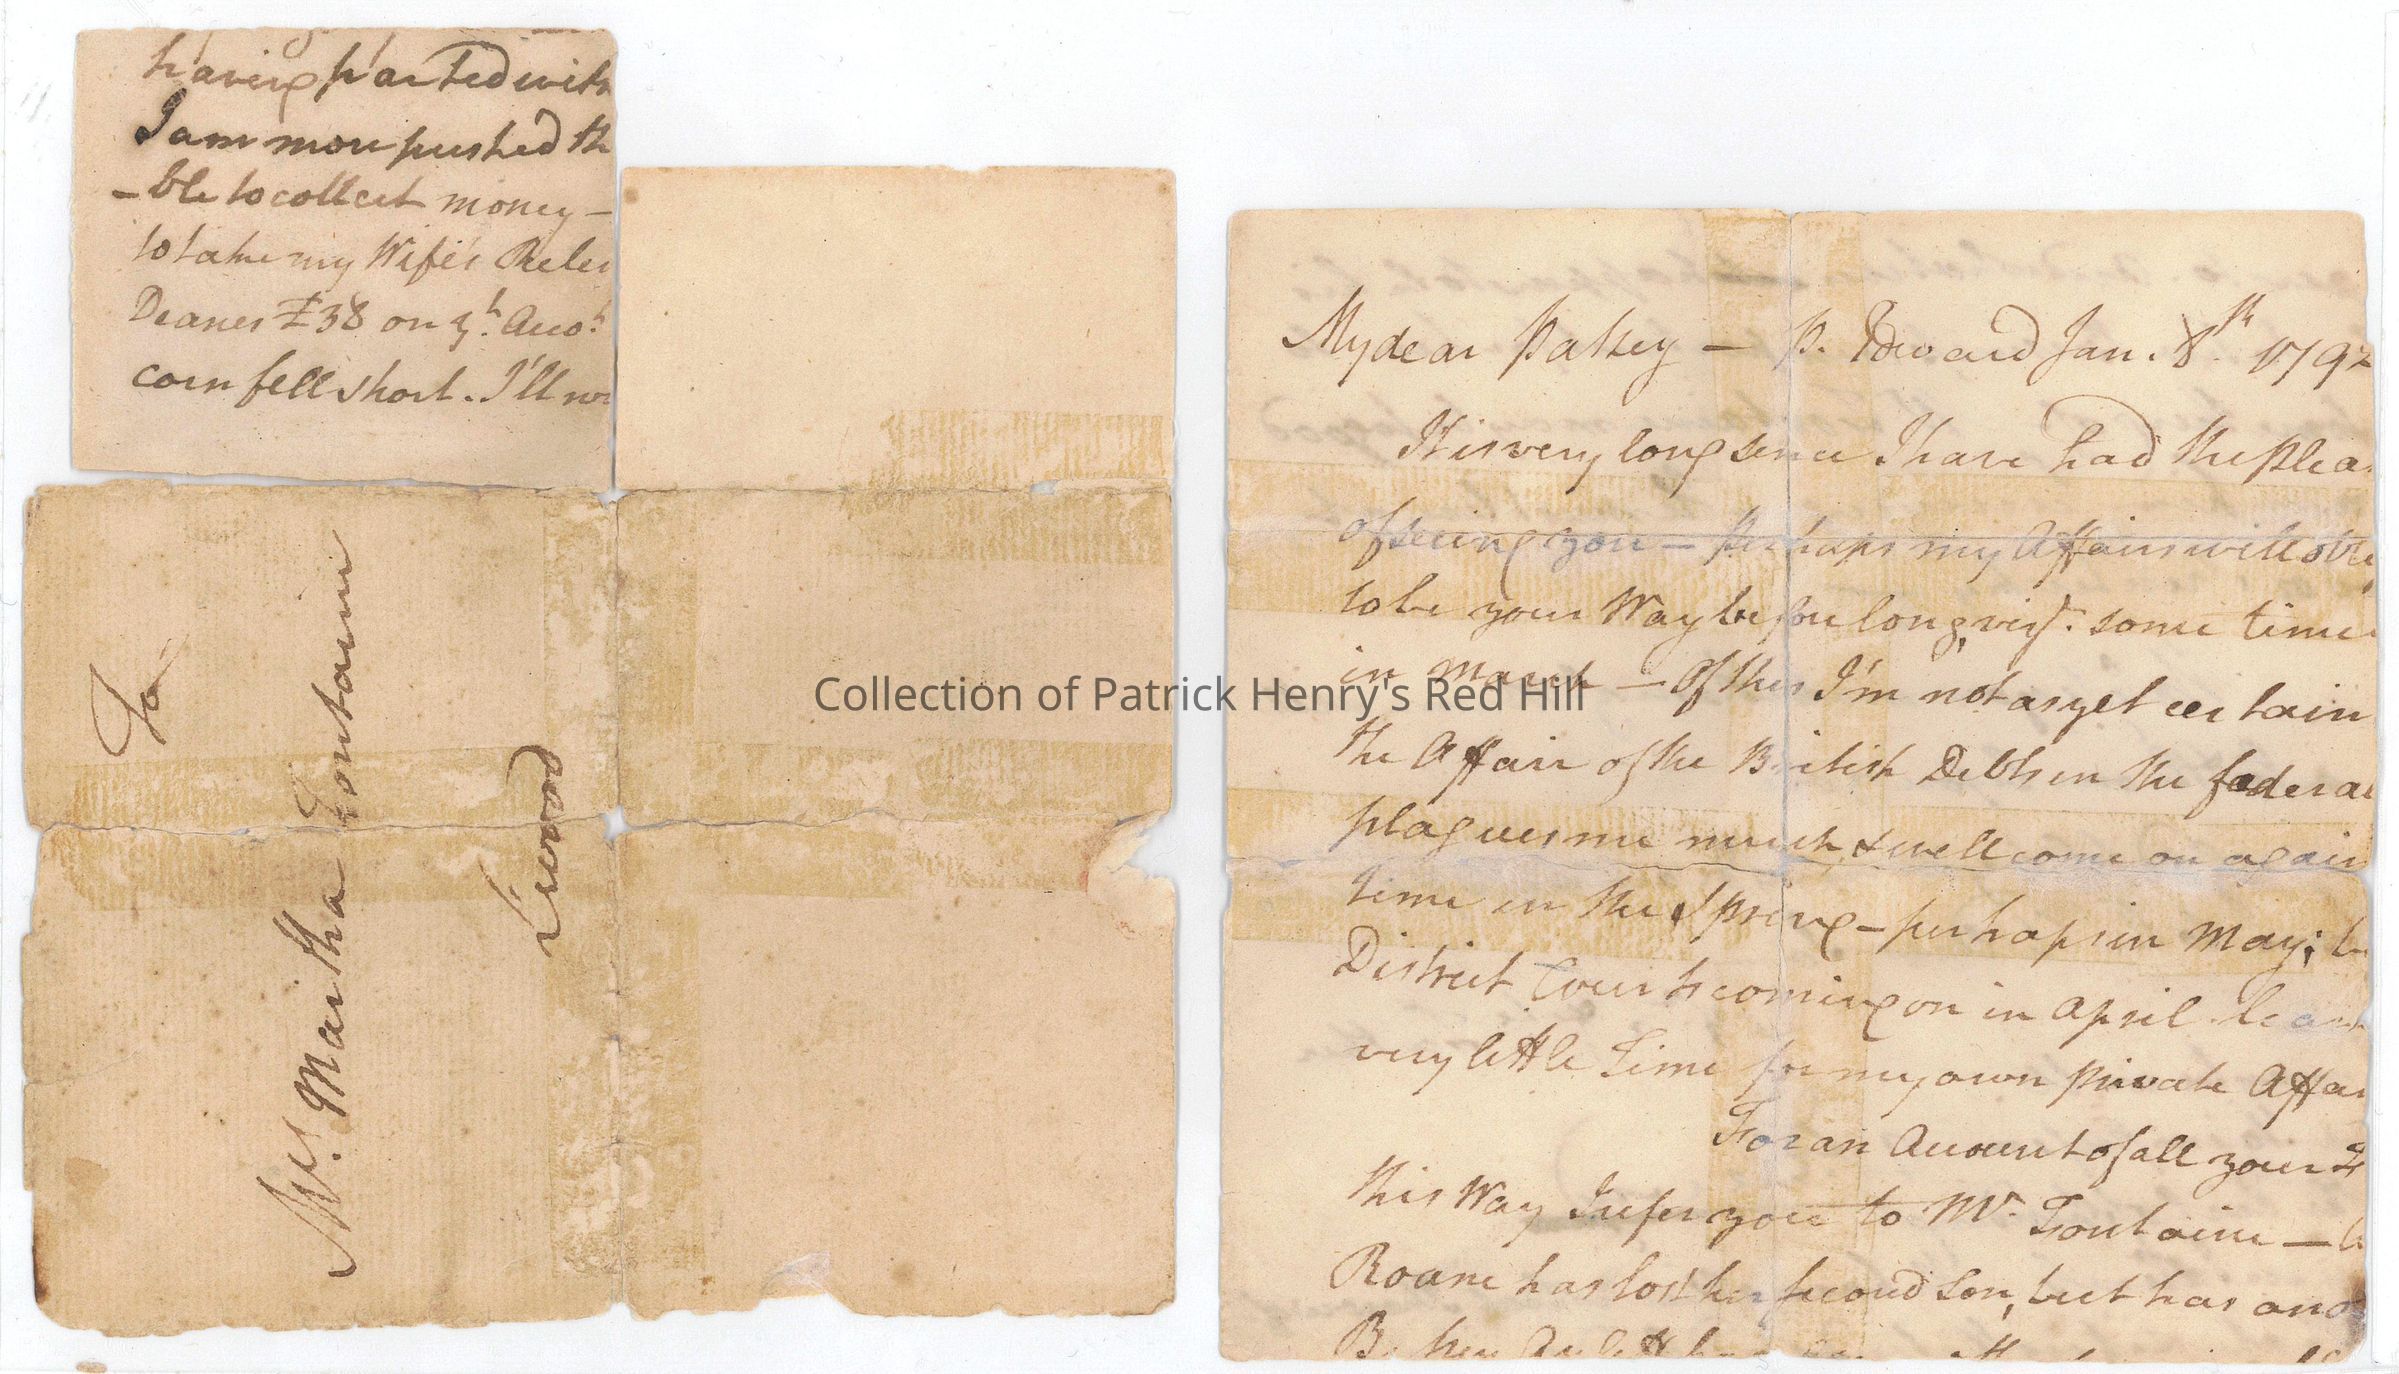 having parted with
I am more pushed th
-ble to collect money -
to take my Wife's Reles
Deanes £38 on yͭ. Accoͭ
corn fell short. I'll
To
Mrs. Martha Fontaine
Lwood
Collection of Patrick Henry's Red Hill
My dear Patsey — P. Edward Jan. 8th. 1792
It is very long since I have had the plea
of seeing you — Perhaps my Affairs will obli
to be your Way before long, vizt. some time
in March — Of this I'm not as yet certain
the Affair of the British Debts in the foderal
plagues me much, & will come on again
time in the Spring — perhaps in May; b
District Courts coming on in April leav
very little Time for my own private Affai
For an Account of all your
this Way I refer you to Mr. Fontaine —
Roane has lost her second Son, but has ano